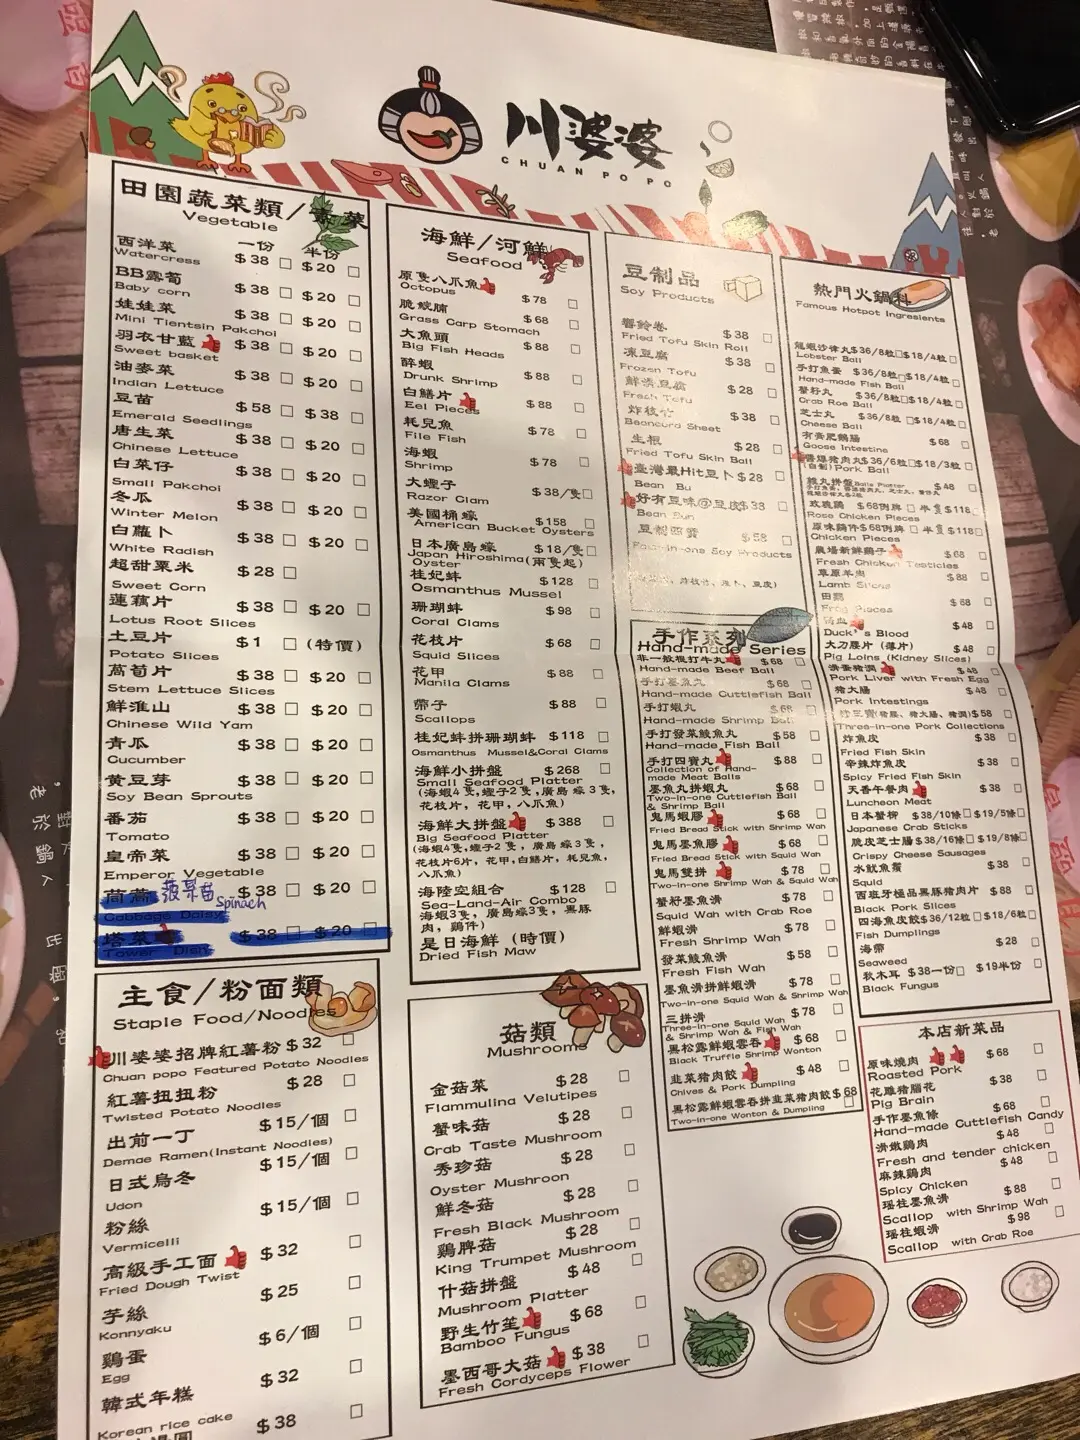 川婆婆
CHUAN PO PO
田園蔬菜類/素菜
Vegetable
一份 半份
西洋菜 $38 □ $20 □
Watercress
BB露筍 $38 □ $20 □
Baby corn
娃娃菜 $38 □ $20 □
Mini Tientsin Pakchoi
羽衣甘藍 $38 □ $20 □
Sweet basket
油麥菜 $38 □ $20 □
Indian Lettuce
豆苗 $58 □ $38 □
Emerald Seedlings
唐生菜 $38 □ $20 □
Chinese Lettuce
白菜仔 $38 □ $20 □
Small Pakchoi
冬瓜 $38 □ $20 □
Winter Melon
白蘿卜 $38 □ $20 □
White Radish
超甜粟米 $28 □
Sweet Corn
蓮藕片 $38 □ $20 □
Lotus Root Slices
土豆片 $1 □ (特價)
Potato Slices
萵筍片 $38 □ $20 □
Stem Lettuce Slices
鮮淮山 $38 □ $20 □
Chinese Wild Yam
青瓜 $38 □ $20 □
Cucumber
黄豆芽 $38 □ $20 □
Soy Bean Sprouts
番茄 $38 □ $20 □
Tomato
皇帝菜 $38 □ $20 □
Emperor Vegetable
茼蒿 菠菜苗 Spinach $38 □ $20 □
Cabbage Daisy
塔菜 $38 □ $20 □
Tower Dish
主食/粉面類
Staple Food/Noodles
川婆婆招牌紅薯粉 $32 □
Chuan popo Featured Potato Noodles
紅薯扭扭粉 $28 □
Twisted Potato Noodles
出前一丁 $15/個 □
Demae Ramen(Instant Noodles)
日式烏冬 $15/個 □
Udon
粉絲 $15/個 □
Vermicelli
高級手工面 $32 □
Fried Dough Twist
芋絲 $25 □
Konnyaku
鷄蛋 $6/個 □
Egg
韓式年糕 $32 □
Korean rice cake
$38 □
海鮮/河鮮
Seafood
原隻八爪魚 $78 □
Octopus
脆鯇腩 $68 □
Grass Carp Stomach
大魚頭 $88 □
Big Fish Heads
醉蝦 $88 □
Drunk Shrimp
白鱔片 $88 □
Eel Pieces
耗兒魚 $78 □
File Fish
海蝦 $78 □
Shrimp
大蟶子 $38/隻 □
Razor Clam
美國桶蠔 $158 □
American Bucket Oysters
日本廣島蠔 $18/隻 □
Japan Hiroshima(兩隻起)
Oyster
桂妃蚌 $128 □
Osmanthus Mussel
珊瑚蚌 $98 □
Coral Clams
花枝片 $68 □
Squid Slices
花甲 $88 □
Manila Clams
帶子 $88 □
Scallops
桂妃蚌拼珊瑚蚌 $118 □
Osmanthus Mussel&Coral Clams
海鮮小拼盤 $268 □
Small Seafood Platter
(海蝦4隻,蟶子2隻,廣島蠔3隻,
花枝片,花甲,八爪魚)
海鮮大拼盤 $388 □
Big Seafood Platter
(海蝦4隻,蟶子2隻,廣島蠔3隻,
花枝片6片,花甲,白鱔片,耗兒魚,
八爪魚)
海陸空組合 $128 □
Sea-Land-Air Combo
海蝦3隻,廣島蠔3隻,黑豚
肉,鷄件)
是日海鮮 (時價)
Dried Fish Maw
菇類
Mushrooms
金菇菜 $28 □
Flammulina Velutipes
蟹味菇 $28 □
Crab Taste Mushroom
秀珍菇 $28 □
Oyster Mushroon
鮮冬菇 $28 □
Fresh Black Mushroom
鷄脾菇 $28 □
King Trumpet Mushroom
什菇拼盤 $48 □
Mushroom Platter
野生竹笙 $68 □
Bamboo Fungus
墨西哥大菇 $38 □
Fresh Cordyceps Flower
豆制品
Soy Products
響鈴卷 $38 □
Fried Tofu Skin Roll
凍豆腐 $38 □
Frozen Tofu
鮮滑豆腐 $28 □
Fresh Tofu
炸枝竹 $38 □
Beancurd Sheet
生根 $28 □
Fried Tofu Skin Ball
臺灣最Hit豆卜 $28 □
Bean Bu
好有豆味@豆皮 $38 □
豆制四寶 $58 □
Four-in-one Soy Products
手作系列
Hand-made Series
非一般握打牛丸 $68 □
Hand-made Beef Ball
手打墨魚丸 $68 □
Hand-made Cuttlefish Ball
手打蝦丸 $68 □
Hand-made Shrimp Ball
手打發菜鯪魚丸 $58 □
Hand-made Fish Ball
手打四寶丸 $88 □
Collection of Hand-
made Meat Balls
墨魚丸拼蝦丸 $68 □
Two-in-one Cuttlefish Ball
& Shrimp Ball
鬼馬蝦膠 $68 □
Fried Bread Stick with Shrimp Wah
鬼馬墨魚膠 $68 □
Fried Bread Stick with Squid Wah
鬼馬雙拼 $78 □
Two-in-one Shrimp Wah & Squid Wah
蟹籽墨魚滑 $78 □
Squid Wah with Crab Roe
鮮蝦滑 $78 □
Fresh Shrimp Wah
發菜鯪魚滑 $58 □
Fresh Fish Wah
墨魚滑拼鮮蝦滑 $78 □
Two-in-one Squid Wah & Shrimp Wah
三拼滑 $78 □
Three-in-one Squid Wah
& Shrimp Wah & Fish Wah
黑松露鮮蝦雲吞 $68 □
Black Truffle Shrimp Wonton
韭菜猪肉餃 $48 □
Chives & Pork Dumpling
黑松露鮮蝦雲吞拼韭菜猪肉餃 $68 □
Two-in-one Wonton & Dumpling
熱門火鍋料
Famous Hotpot Ingresients
龍蝦沙律丸 $36/8粒 □ $18/4粒 □
Lobster Ball
手打魚蛋 $36/8粒 □ $18/4粒 □
Hand-made Fish Ball
蟹籽丸 $36/8粒 □ $18/4粒 □
Crab Roe Ball
芝士丸 $36/8粒 □ $18/4粒 □
Cheese Ball
有膏肥鵝腸 $68 □
Goose Intestine
醬爆猪肉丸 $36/6粒 □ $18/3粒 □
(自制) Pork Ball
雜丸拼盤 Balls Platter $48 □
玫瑰鷄 $68例牌 □ 半隻$118 □
Rose Chicken Pieces
原味鷄件 $68例牌 □ 半隻$118 □
Chicken Pieces
農場新鮮鷄子 $68 □
Fresh Chicken Testicles
草原羊肉 $88 □
Lamb Slices
田鷄 $68 □
Frog Pieces
$48 □
Duck's Blood
大刀腰片 (薄片) $48 □
Pig Loins (Kidney Slices)
滑蛋猪潤 $48 □
Pork Liver with Fresh Egg
猪大腸 $48 □
Pork Intestings
$58 □
Three-in-one Pork Collections
炸魚皮 $38 □
Fried Fish Skin
辛辣炸魚皮 $38 □
Spicy Fried Fish Skin
天香午餐肉 $38 □
Luncheon Meat
日本蟹柳 $38/10條 □ $19/5條 □
Japanese Crab Sticks
脆皮芝士腸 $38/16條 □ $19/8條 □
Crispy Cheese Sausages
水魷魚鬚 $38 □
Squid
西班牙極品黑豚猪肉片 $88 □
Black Pork Slices
四海魚皮餃 $36/12粒 □ $18/6粒 □
Fish Dumplings
海帶 $28 □
Seaweed
秋木耳 $38一份 □ $19半份 □
Black Fungus
本店新菜品
原味燒肉 $68 □
Roasted Pork
花雕猪腦花 $38 □
Pig Brain
手作墨魚條 $68 □
Hand-made Cuttlefish Candy
滑嫩鷄肉 $48 □
Fresh and tender chicken
麻辣鷄肉 $48 □
Spicy Chicken
瑶柱墨魚滑 $88 □
Scallop with Shrimp Wah
瑶柱蝦滑 $98 □
Scallop with Crab Roe